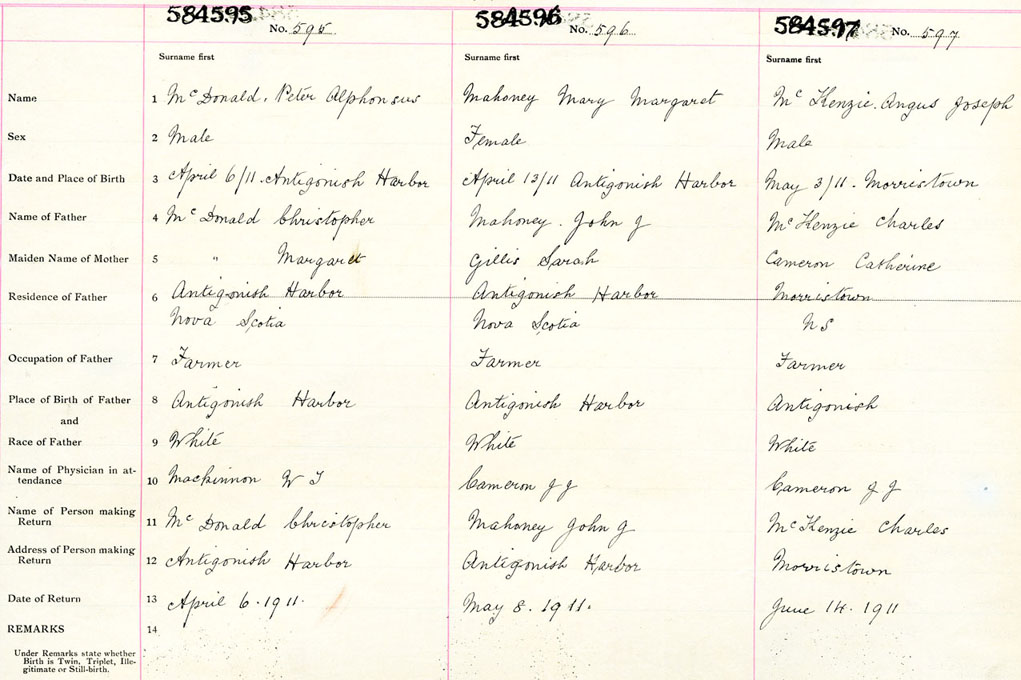 584595 584596 584597
No. 595 No. 596 No. 597
Surname first Surname first Surname first
Name 1 Mc Donald, Peter Alphonsus Mahoney Mary Margaret Mc Kenzie. Angus Joseph
Sex 2 Male Female Male
Date and Place of Birth 3 April 6/11. Antigonish Harbor April 13/11 Antigonish Harbor May 3/11. Morristown
Name of Father 4 Mc Donald Christopher Mahoney. John J Mc Kenzie Charles
Maiden Name of Mother 5 " Margaret Gillis Sarah Cameron Catherine
Residence of Father 6 Antigonish Harbor Antigonish Harbor Morristown
Nova Scotia Nova Scotia N S
Occupation of Father 7 Farmer Farmer Farmer
Place of Birth of Father 8 Antigonish Harbor Antigonish Harbor Antigonish
and
Race of Father 9 White White White
Name of Physician in at-
tendance 10 Mackinnon W J Cameron J J Cameron J J
Name of Person making
Return 11 Mc Donald Christopher Mahoney John J Mc Kenzie Charles
Address of Person making
Return 12 Antigonish Harbor Antigonish Harbor Morristown
Date of Return 13 April 6. 1911. May 8. 1911. June 14. 1911
REMARKS 14
Under Remarks state whether
Birth is Twin, Triplet, Ille-
gitimate or Still-birth.